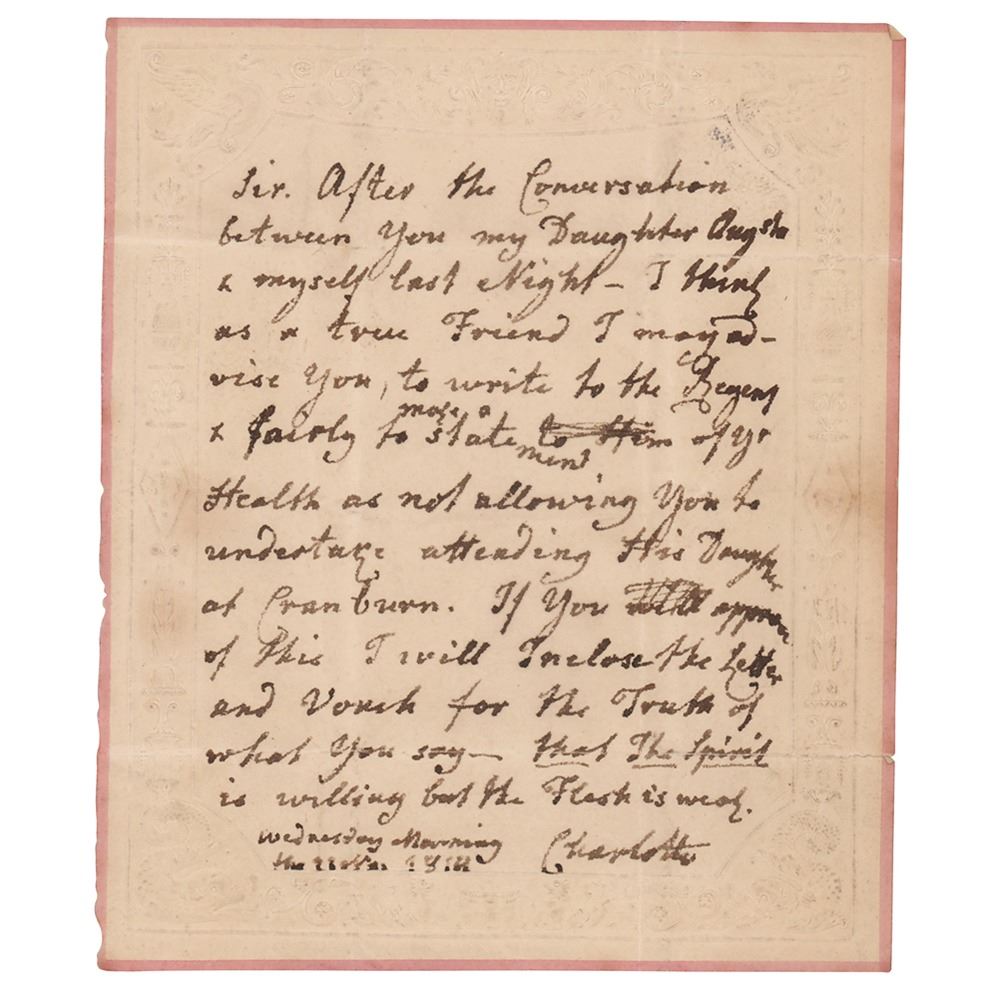 Sir. After the Conversation
between You my Daughter Augsta
& myself last Night – I think
as a true Friend I may ad-
vise You, to write to the Regent
& fairly to make a statement to Him of Yr
Health as not allowing You to
undertake attending His Daughter
at Cranburn. If You will approve
of this I will Inclose the Letter
and Vouch for the Truth of
what You say – that The Spirit
is willing but the Flesh is weak.
Wednesday Morning Charlotte
the